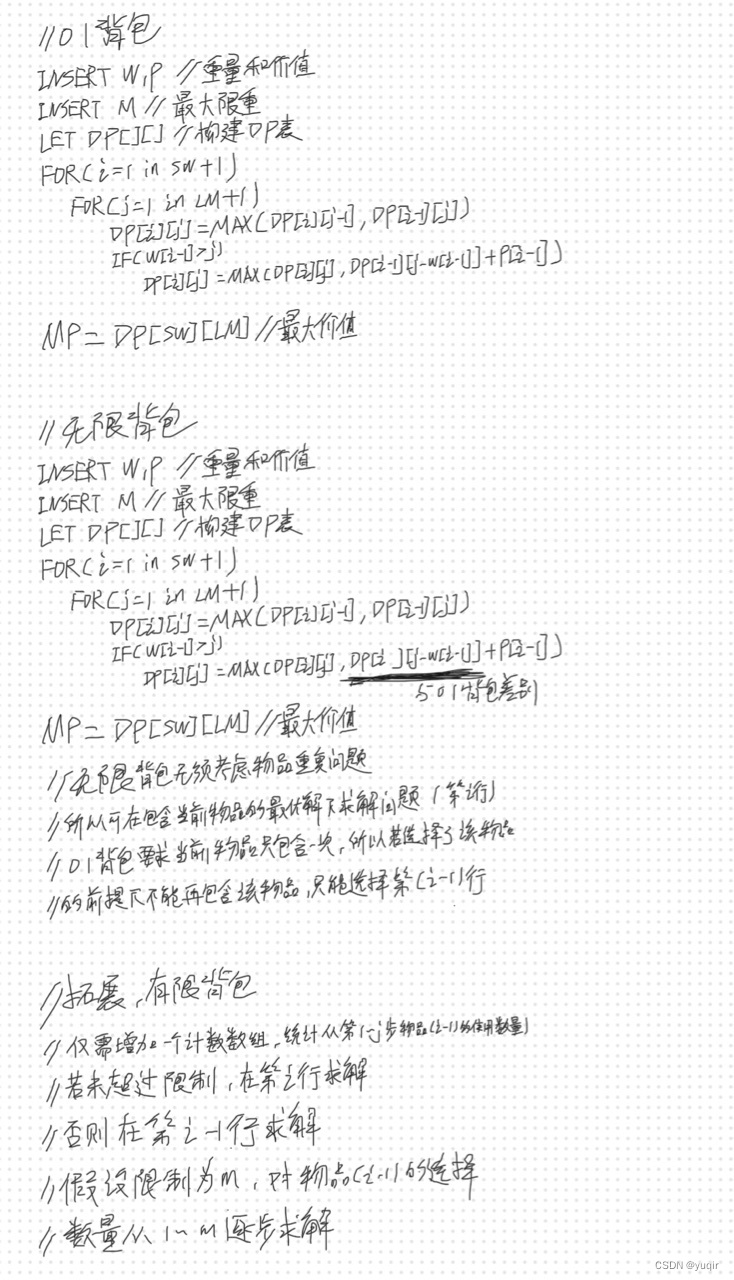 //01背包
INSERT W,P //重量和价值
INSERT M // 最大限重
LET DP[][] //构建DP表
FOR(i=1 in SW+1)
FOR(j=1 in LM+1)
DP[i][j]=MAX(DP[i][j-1], DP[i-1][j])
IF(W[i-1]>j)
DP[i][j]=MAX(DP[i][j], DP[i-1][j-W[i-1]]+P[i-1])
MP = DP[SW][LM] //最大价值
//无限背包
INSERT W,P //重量和价值
INSERT M // 最大限重
LET DP[][] //构建DP表
FOR(i=1 in SW+1)
FOR(j=1 in LM+1)
DP[i][j]=MAX(DP[i][j-1], DP[i-1][j])
IF(W[i-1]>j)
DP[i][j]=MAX(DP[i][j], DP[i ][j-W[i-1]]+P[i-1])
与01背包差别
MP = DP[SW][LM] //最大价值
//无限背包无须考虑物品重复问题
//所以可在包含当前物品的最优解下求解问题(第i行)
//01背包要求当前物品只包含一次,所以若选择了该物品
//的前提下不能再包含该物品,只能选择第(i-1)行
//拓展,有限背包
//仅需增加一个计数数组,统计从第1~j步物品(i-1)的使用数量)
//若未超过限制,在第i行求解
//否则在第i-1行求解
//假设限制为m,对物品(i-1)的选择
//数量从1~m逐步求解
CSDN @yuqir